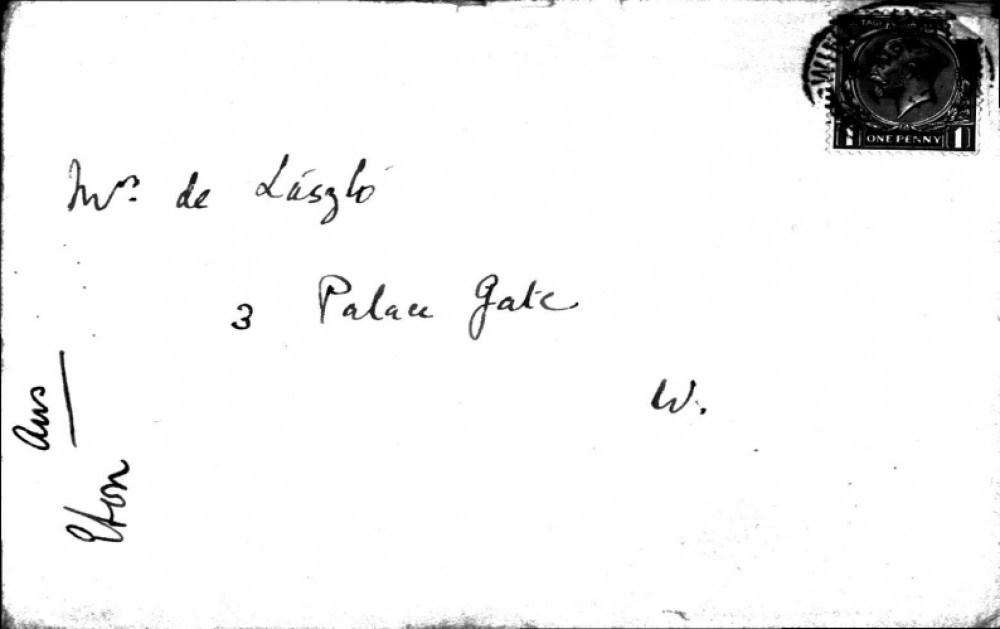 Mrs. de László
3 Palace Gate
W.
Ans
Eton
ONE PENNY
1 1